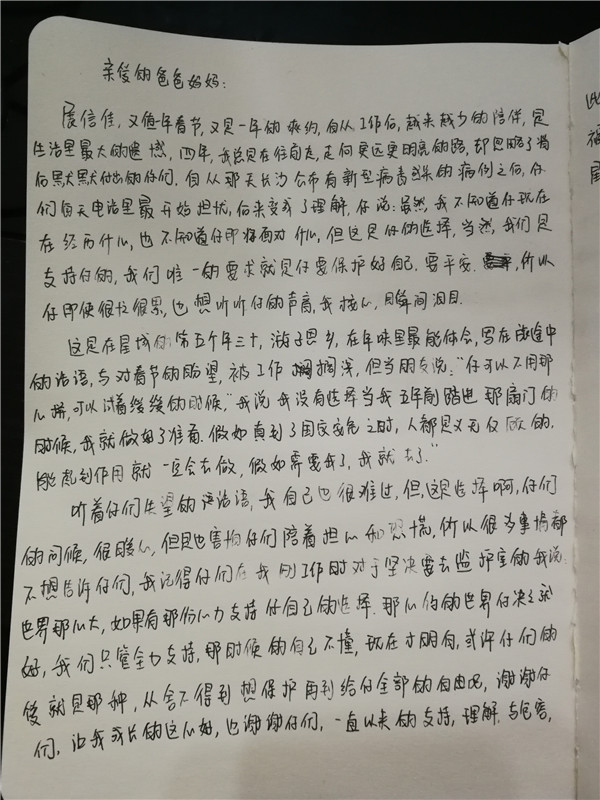 亲爱的爸爸妈妈：
展信佳，又值一年春节，又是一年的爽约，自从工作后，越来越少的陪伴，是
生活里最大的遗憾，四年，我总是在往前走，走向更远更明亮的路，却忽略了背
后默默付出的你们，自从那天长沙公布有新型病毒感染的病例之后，你
们每天电话里最开始担忧，后来变成了理解，你说：虽然，我不知道你现在
在经历什么，也不知道你即将面对什么，但这是你的选择，当然，我们是
支持你的，我们唯一的要求就是你要保护好自己，要平安，所以
你即使很忙很累，也想听听你的声音，我揪心，瞬间泪目
这是在星城的第五个年三十，游子思乡，在年味里最能体会，写在旅途中
的话语，与对春节的盼望，被工作搁浅，但当朋友说："你可以不用那
么拼，可以试着缓缓的时候，"我说我没有选择当我五年前踏进那扇门的
时候，我就做好了准备，假如真到了国家安危之时，人都是义无反顾的，
能起到作用就一定会去做，假如需要我了，我就去了"
听着你们失望的话语，我自己也很难过，但，这是选择啊，你们
的问候，很暖心，但是也害怕你们陪着担心和恐慌，所以很多事情都
不想告诉你们，我记得你们在我刚工作时对于坚决要去监护室的我说：
世界那么大，如果有那份心力支持你自己的选择，那么你的世界你决定就
好，我们只管全力支持，那时候的自己不懂，现在才明白，或许你们的
爱就是那种，从舍不得到想保护再到给你全部的自由吧，谢谢你
们，让我成长的这么好，也谢谢你们，一直以来的支持，理解，与包容，
此
福